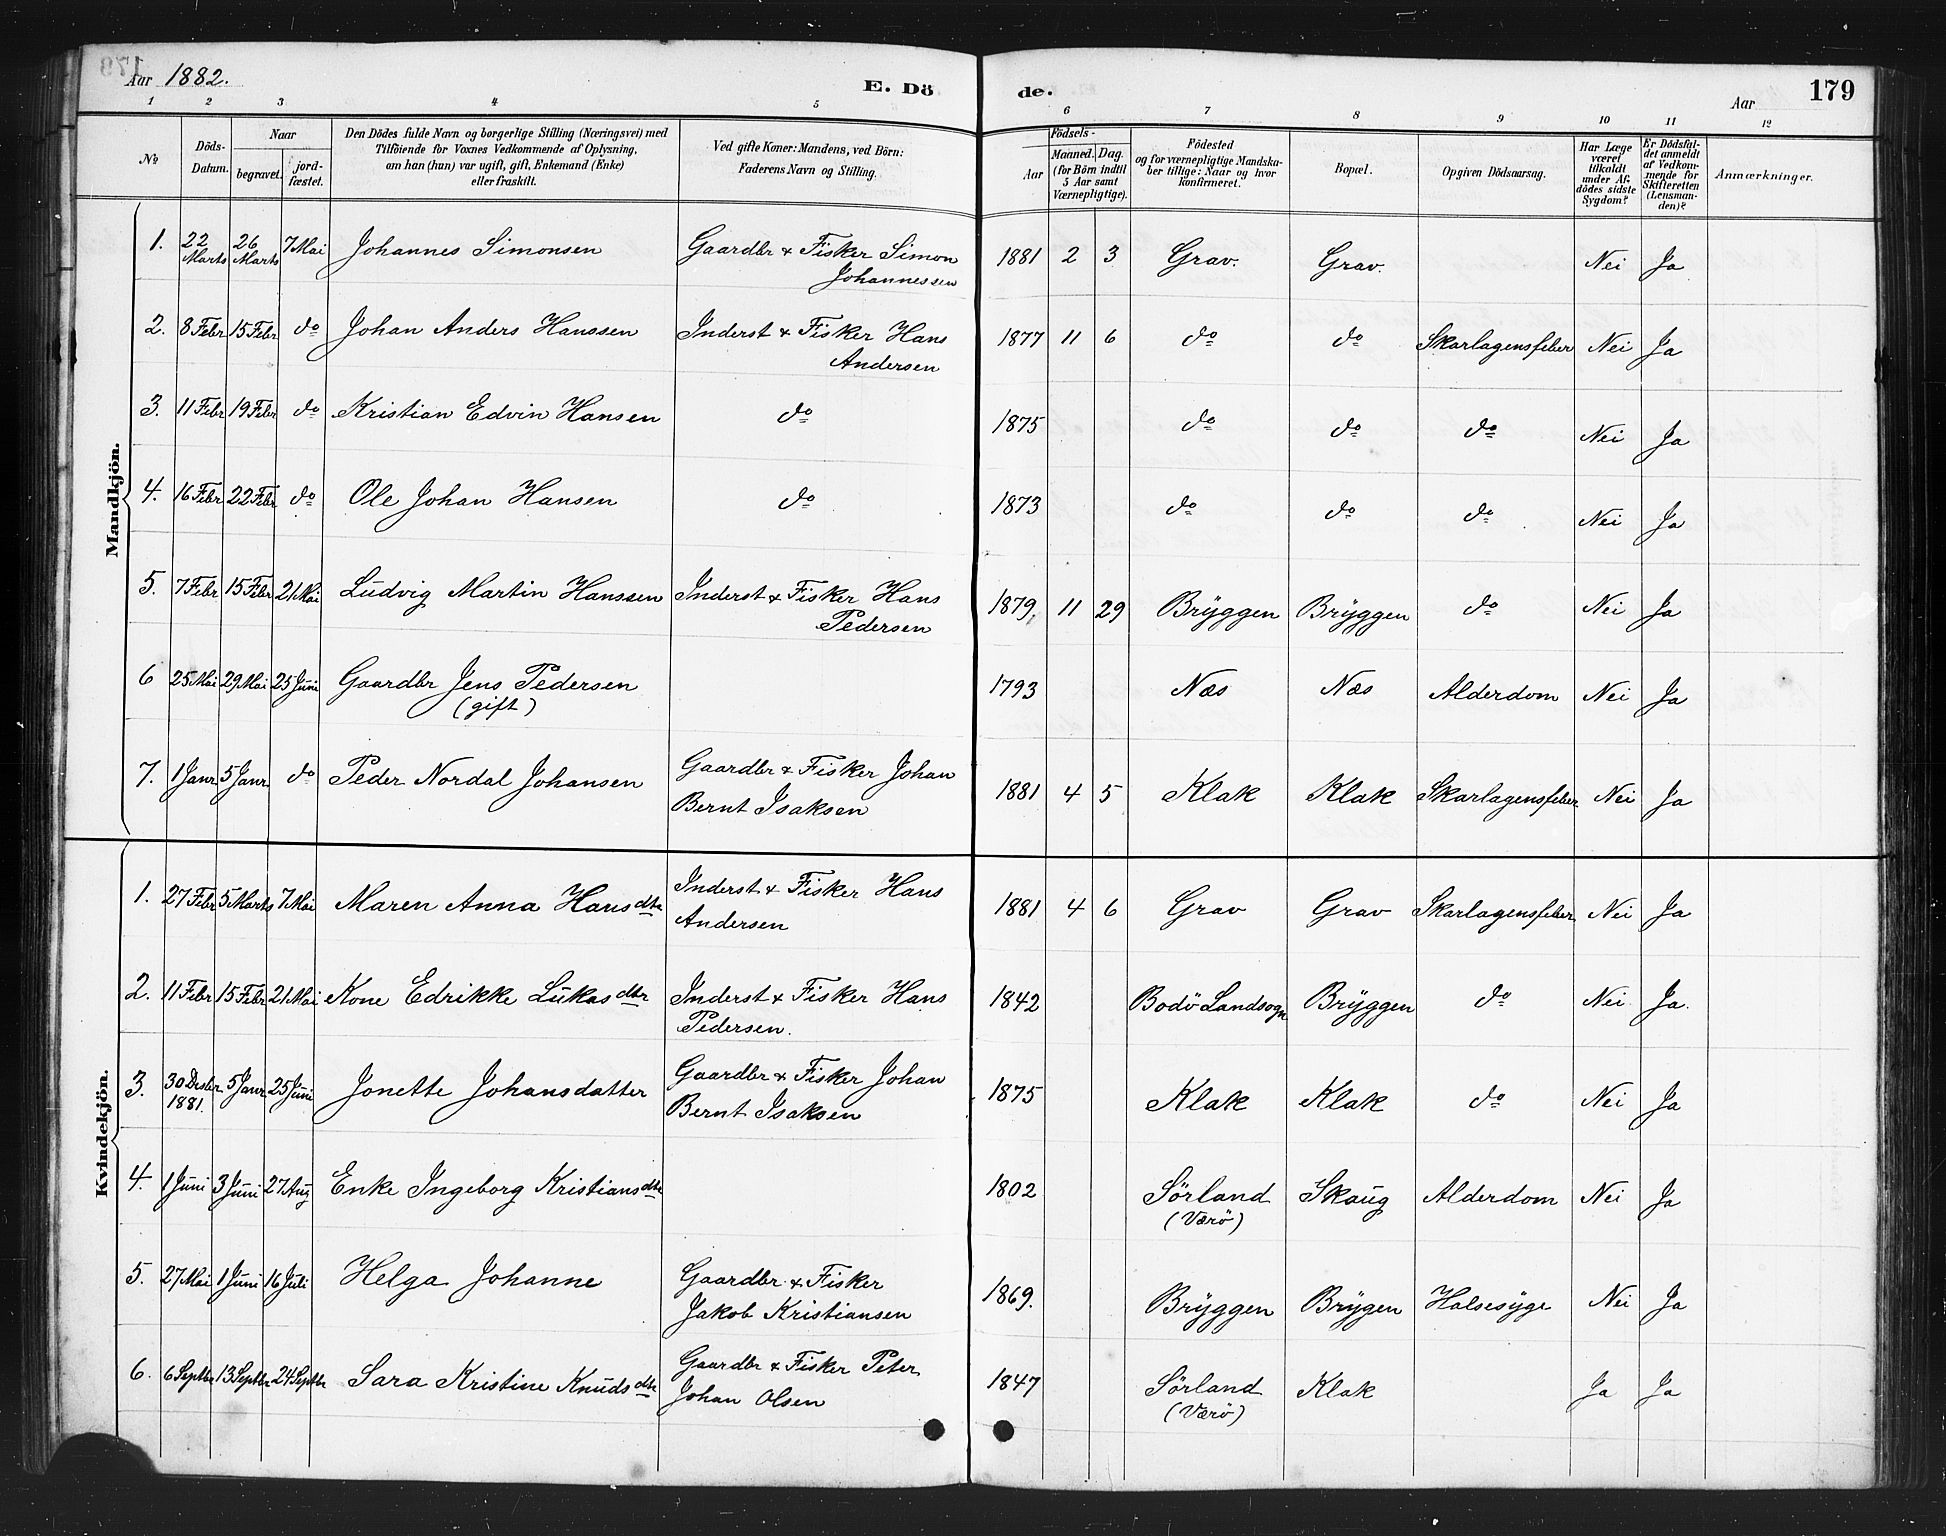 Aar 1882.
E. Dö
de.
Aar
179
1 2 3 4 5 6 7 8 9 10 11 12
No
Döds-Datum.
Naar
begravet.
jord-fæstet.
Den Dödes fulde Navn og borgerlige Stilling (Næringsvei) med
Tilföiende for Voxnes Vedkommende af Oplysning,
om han (hun) var ugift, gift, Enkemand (Enke)
eller fraskilt.
Ved gifte Koner: Mandens, ved Börn:
Faderens Navn og Stilling.
Födsels-
Aar
Maaned. Dag.
(for Börn indtil
5 Aar samt
Værnepligtige).
Födested
og for værnepligtige Mandska-
ber tillige: Naar og hvor
konfirmeret.
Bopæl.
Opgiven Dödsaarsag.
Har Læge
været
tilkaldt
under Af-
dödes sidste
Sygdom?
Er Dödsfal-
det anmeldt
af Vedkom-
mende for
Skifteretten
(Lensman-
den)?
Anmærkninger.
Mandkjön.
1. 22 Marts 26 Marts 7 Mai Johannes Simonsen Gaardbr & Fisker Simon Johannessen 1881 2 3 Grav. Grav. Nei Ja
2. 8 Febr 15 Febr do Johan Anders Hanssen Inderst & Fisker Hans Andersen 1877 11 6 do do Skarlagensfeber Nei Ja
3. 11 Febr 19 Febr do Kristian Edvin Hansen do 1875 do do do Nei Ja
4. 16 Febr 22 Febr do Ole Johan Hansen do 1873 do do do Nei Ja
5. 7 Febr 15 Febr 21 Mai Ludvig Martin Hanssen Inderst & Fisker Hans Pedersen 1879. 11 29 Brÿggen Brÿggen do Nei Ja
6 25 Mai 29 Mai 25 Juni Gaardbr Jens Pedersen (gift) 1793 Næs Næs Alderdom Nei Ja
7. 1 Janr 5 Janr do Peder Nordal Johansen Gaardbr & Fisker Johan Bernt Isaksen 1881 4 5 Klak Klak Skarlagensfeber Nei Ja
Kvindekjön.
1. 27 Febr 5 Marts 7 Mai Maren Anna Hansdtr Inderst & Fisker Hans Andersen 1881 4 6 Grav Grav Skarlagensfeber Nei Ja
2. 11 Febr 15 Febr 21 Mai Kone Edrikke Lukasdtr Inderst & Fisker Hans Pedersen. 1842 Bodö Landsogn Brÿggen do Nei Ja.
3. 30 Desbr 1881. 5 Janr 25 Juni Jonette Johansdatter Gaardbr & Fisker Johan Bernt Isaksen 1875 Klak Klak do Nei Ja
4. 1 Juni 3 Juni 27 Aug Enke Ingeborg Kristiansdtr 1802 Sörland (Værö) Skaug Alderdom Nei Ja
5. 27 Mai 1 Juni 16 Juli Helga Johanne Gaardbr & Fisker Jakob Kristiansen 1869. Brÿggen Brÿgen Halsesÿge Nei Ja
6. 6 Septbr 13 Septbr 24 Septbr Sara Kristine Knudsdtr Gaardbr & Fisker Peter Johan Olsen 1847 Sörland (Værö) Klak Ja Ja